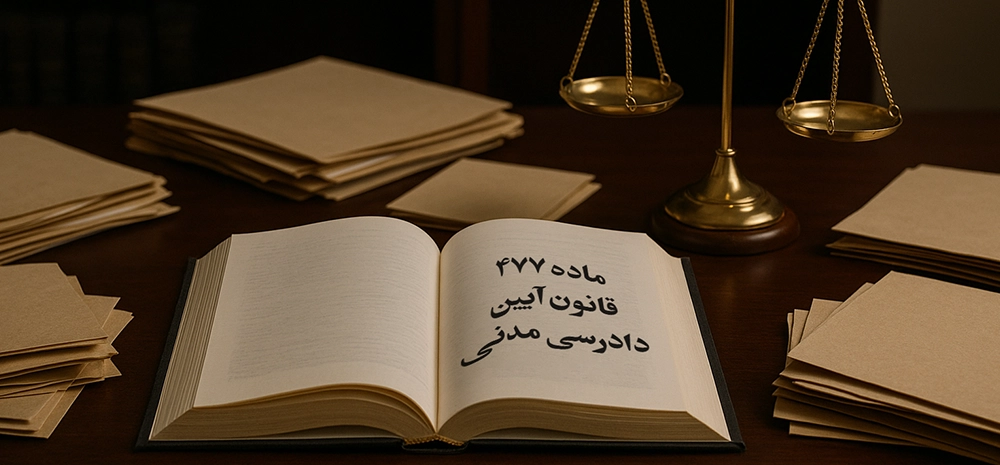 ماده ۴۷۷
قانون آیین
دادرسی مدنی